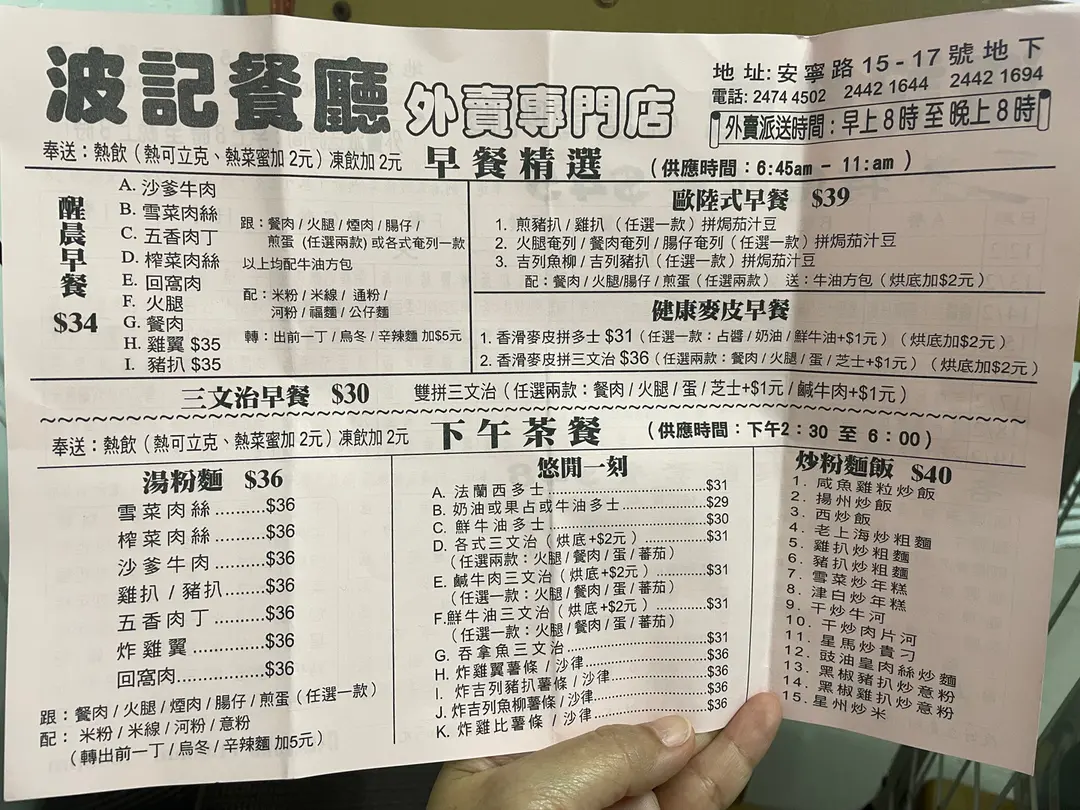 波記餐廳 外賣專門店
地址:安寧路15-17號地下
電話: 2474 4502 2442 1644 2442 1694
外賣派送時間:早上8時至晚上8時
奉送:熱飲(熱可立克、熱菜蜜加 2元)凍飲加 2元 早餐精選 (供應時間:6:45am – 11:am)
醒晨早餐 $34
A. 沙爹牛肉
B. 雪菜肉絲
C. 五香肉丁
D. 榨菜肉絲
E. 回窩肉
F. 火腿
G. 餐肉
H. 雞翼 $35
I. 豬扒 $35
跟:餐肉/火腿/煙肉/腸仔/
煎蛋(任選兩款)或各式奄列一款
以上均配牛油方包
配:米粉/米線/通粉/
河粉/福麵/公仔麵
轉:出前一丁/烏冬/辛辣麵 加$5元
歐陸式早餐 $39
1. 煎豬扒/雞扒(任選一款)拼焗茄汁豆
2. 火腿奄列/餐肉奄列/腸仔奄列(任選一款)拼焗茄汁豆
3. 吉列魚柳/吉列豬扒(任選一款)拼焗茄汁豆
配:餐肉/火腿/腸仔/煎蛋(任選兩款) 送:牛油方包(烘底加$2元)
健康麥皮早餐
1. 香滑麥皮拼多士 $31(任選一款:占醬/奶油/鮮牛油+$1元)(烘底加$2元)
2. 香滑麥皮拼三文治 $36(任選兩款:餐肉/火腿/蛋/芝士+$1元)(烘底加$2元)
三文治早餐 $30 雙拼三文治(任選兩款:餐肉/火腿/蛋/芝士+$1元/鹹牛肉+$1元)
奉送:熱飲(熱可立克、熱菜蜜加 2元)凍飲加 2元 下午茶餐 (供應時間:下午2:30 至 6:00)
湯粉麵 $36
雪菜肉絲.........$36
榨菜肉絲.........$36
沙爹牛肉.........$36
雞扒/豬扒........$36
五香肉丁.........$36
炸雞翼...........$36
回窩肉...........$36
跟:餐肉/火腿/煙肉/腸仔/煎蛋(任選一款)
配:米粉/米線/河粉/意粉
(轉出前一丁/烏冬/辛辣麵 加5元)
悠閒一刻
A. 法蘭西多士..............................$31
B. 奶油或果占或牛油多士..............$29
C. 鮮牛油多士..............................$30
D. 各式三文治(烘底+$2元)..............$31
(任選兩款:火腿/餐肉/蛋/蕃茄)
E. 鹹牛肉三文治(烘底+$2元)...........$31
(任選一款:火腿/餐肉/蛋/蕃茄)
F.鮮牛油三文治(烘底+$2元)............$31
(任選一款:火腿/餐肉/蛋/蕃茄)
G. 吞拿魚三文治...........................$31
H. 炸雞翼薯條/沙律......................$36
I. 炸吉列豬扒薯條/沙律..................$36
J. 炸吉列魚柳薯條/沙律..................$36
K. 炸雞比薯條/沙律......................$36
炒粉麵飯 $40
1. 咸魚雞粒炒飯
2. 揚州炒飯
3. 西炒飯
4. 老上海炒粗麵
5. 雞扒炒粗麵
6. 豬扒炒粗麵
7. 雪菜炒年糕
8. 津白炒年糕
9. 干炒牛河
10. 干炒肉片河
11. 星馬炒貴刁
12. 豉油皇肉絲炒麵
13. 黑椒豬扒炒意粉
14. 黑椒雞扒炒意粉
15. 星州炒米